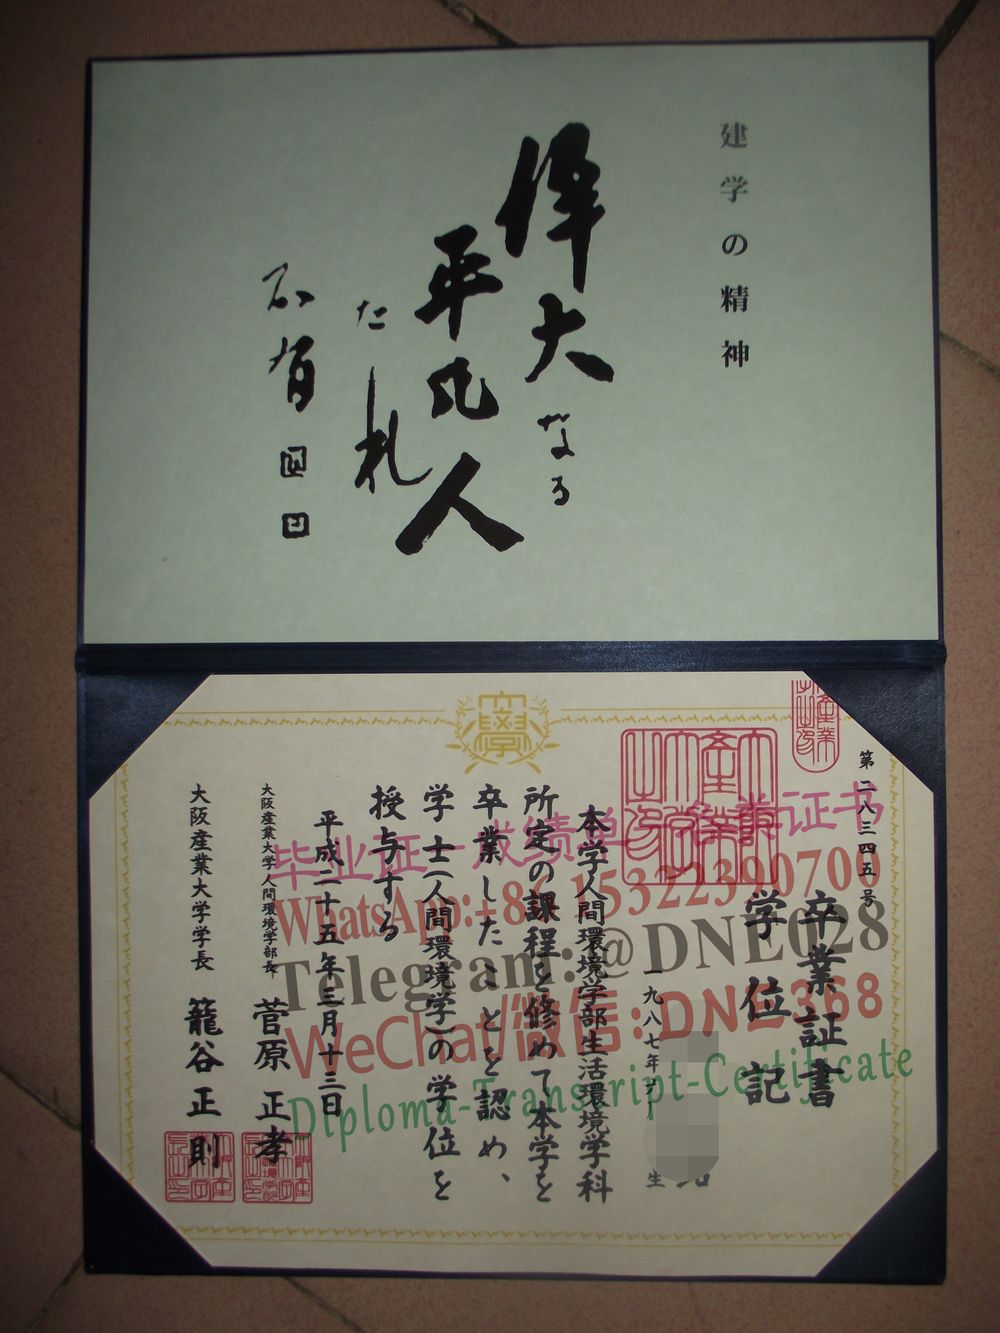 建学の精神
偉大なる
平凡人
たれ
第二八三四五号
卒業証書
学位記
一九八七年
生
本学人間環境学部生活環境学科
所定の課程を修めて本学を
卒業したことを認め、
学士(人間環境学)の学位を
授与する
平成二十五年三月十三日
大阪産業大学人間環境学部長 菅原正孝
大阪産業大学学長 籠谷正則
毕业证-成绩单-学业证书
WhatsApp:+86 15322390700
Telegram:@DNE028
WeChat/微信:DNE368
Diploma-Transcript-Certificate